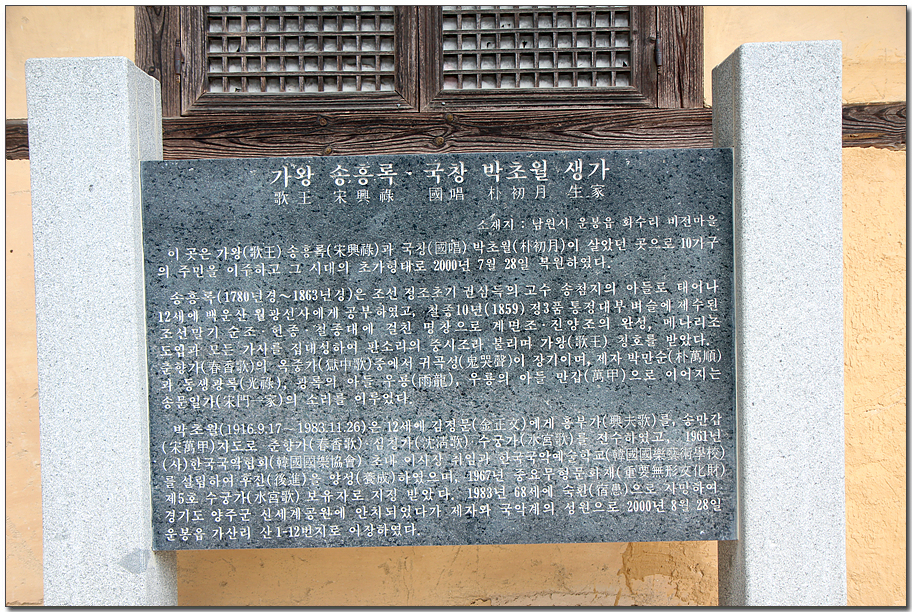 가왕 송흥록·국창 박초월 생가
歌王 宋興祿 國唱 朴初月 生家
소재지 : 남원시 운봉읍 화수리 비전마을
이 곳은 가왕(歌王) 송흥록(宋興祿)과 국창(國唱) 박초월(朴初月)이 살았던 곳으로 10가구
의 주민을 이주하고 그 시대의 초가형태로 2000년 7월 28일 복원하였다.
송흥록(1780년경~1863년경)은 조선 정조초기 권삼득의 고수 송첨지의 아들로 태어나
12세에 백운산 월광선사에게 공부하였고, 철종10년(1859) 정3품 통정대부 벼슬에 제수된
조선말기 순조·헌종·철종대에 걸친 명창으로 계면조·진양조의 완성, 메나리조
도입과 모든 가사를 집대성하여 판소리의 중시조라 불리며 가왕(歌王) 칭호를 받았다.
춘향가(春香歌)의 옥중가(獄中歌)중에서 귀곡성(鬼哭聲)이 장기이며, 제자 박만순(朴萬順)
과 동생광록(光祿), 광록의 아들 우룡(雨龍), 우룡의 아들 만갑(萬甲)으로 이어지는
송문일가(宋門一家)의 소리를 이루었다.
박초월(1916.9.17~1983.11.26)은 12세에 김정문(金正文)에게 흥부가(興夫歌)를, 송만갑
(宋萬甲)지도로 춘향가(春香歌) 심청가(沈淸歌) 수궁가(水宮歌)를 전수하였고, 1961년
(사)한국국악협회(韓國國樂協會) 초대 이사장 취임과 한국국악예술학교(韓國國樂藝術學校)
를 설립하여 후진(後進)을 양성(養成)하였으며, 1967년 중요무형문화재(重要無形文化財)
제5호 수궁가(水宮歌) 보유자로 지정 받았다. 1983년 68세에 숙환(宿患)으로 사망하여
경기도 양주군 신세계공원에 안치되었다가 제자와 국악계의 성원으로 2000년 8월 28일
운봉읍 가산리 산 1-12번지로 이장하였다.